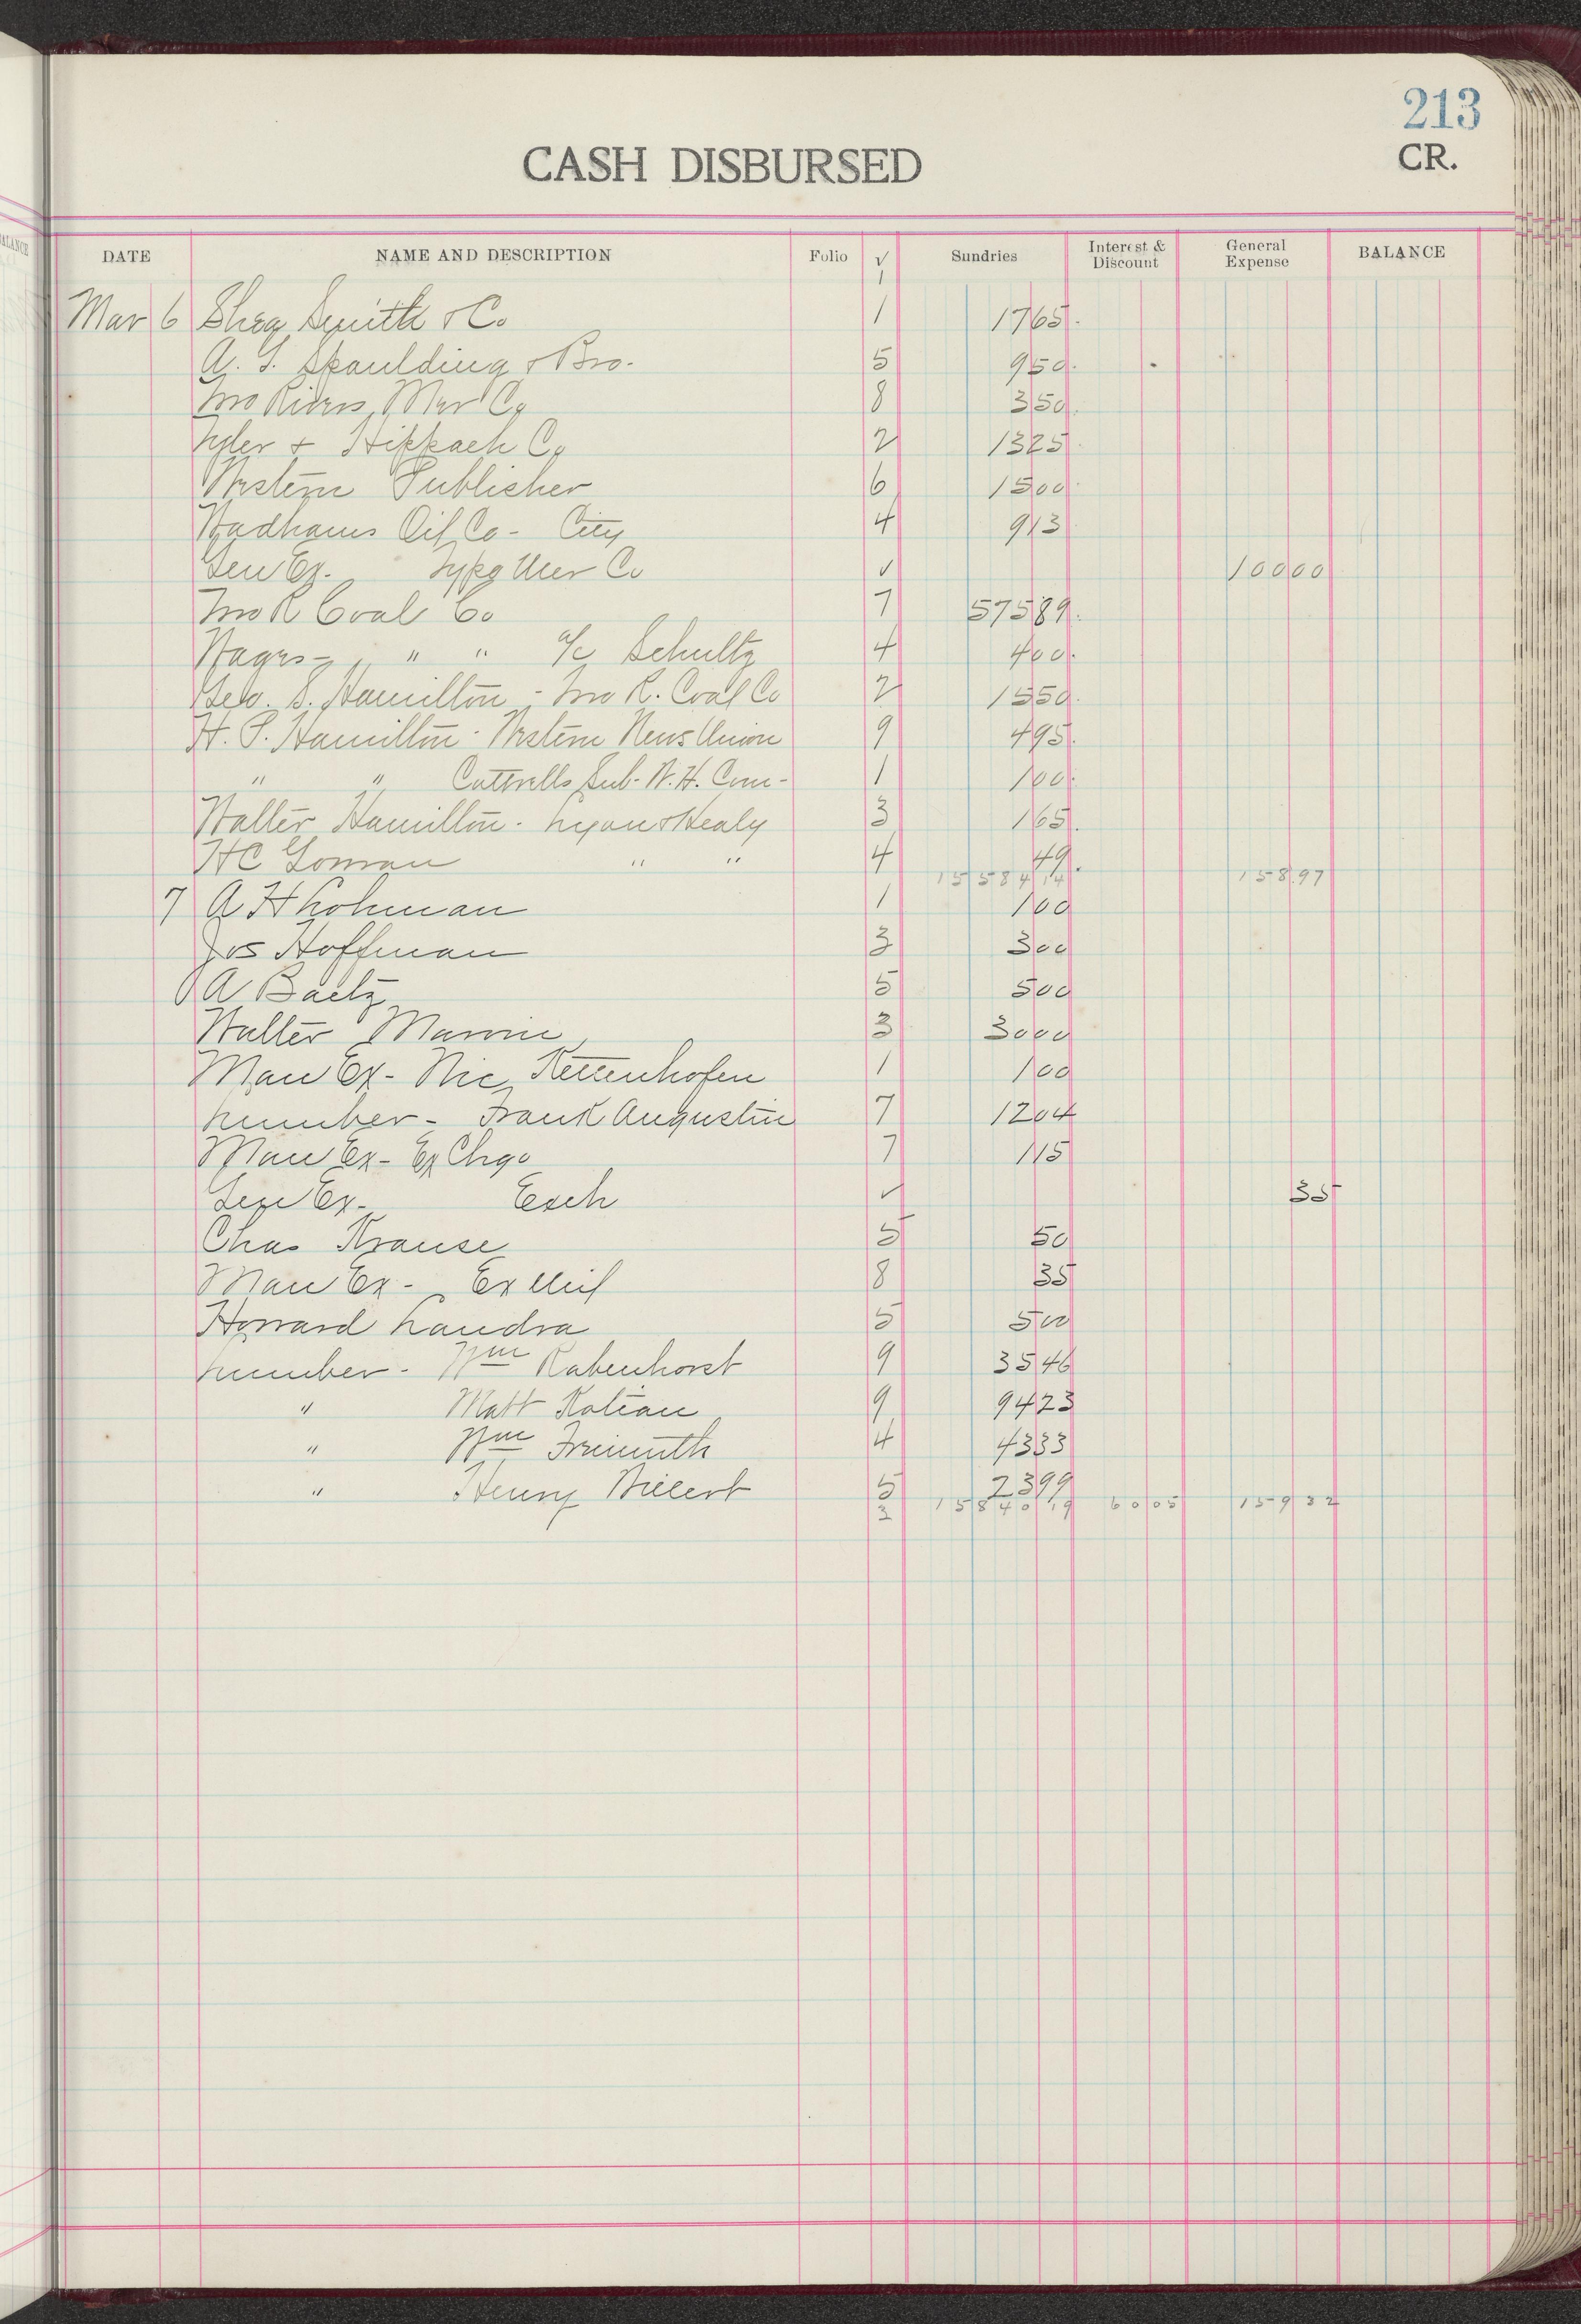 213
CASH DISBURSED CR.
DATE NAME AND DESCRIPTION Folio √ Sundries Interest & Discount General Expense BALANCE
1
Mar 6 Shea Smith & Co 1 1765
A. G. Spaulding & Bro. 5 950
Two Rivers Mer Co 8 350
Tyler & Hippach Co 2 1325
Western Publisher 6 1500
Wadhams Oil Co - City 4 913
Gen Ex. Typo Mer Co √ 10000
Two R Coal Co 7 57589
Wages - " " a/c Schultz 4 400
Geo. S. Hamilton - Two R. Coal Co 2 1550
H. P. Hamilton - Western News Union 9 495
" " Cottrells Sub. W. H. Com - 1 100
Walter Hamilton - Lyon & Healy 3 165
HC Goman " " 4 49
15584 14 158 97
7 A H Lohman 1 100
Jos Hoffman 3 300
A Baetz 5 500
Walter Marvin 3 3000
Man Ex - Nic Kettenhofen 1 100
Lumber - Frank Augustin 7 1204
Man Ex - Ex Chgo 7 115
Gen Ex - Exch √ 35
Chas Krause 5 50
Man Ex - Ex Mil 8 35
Howard Landra 5 500
Lumber - Wm Rabenhorst 9 3546
" Matt Kolian 9 9423
" Wm Freimuth 4 4333
" Henry Willert 5 2399
3 15840 19 60 05 159 32